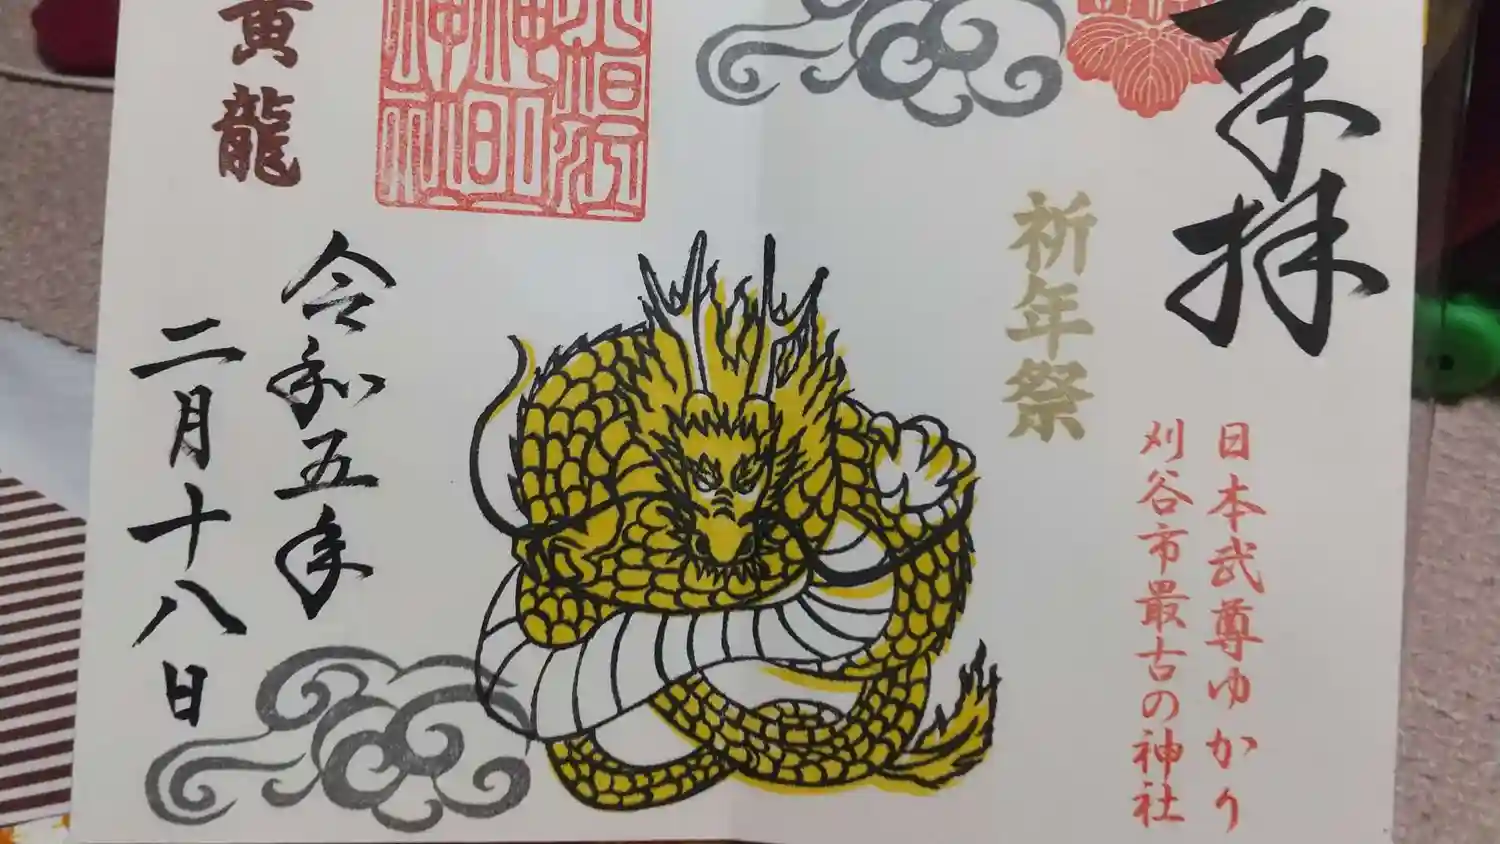 奉拝
日本武尊ゆかり
刈谷市最古の神社
祈年祭
黄龍
令和五年
二月十八日